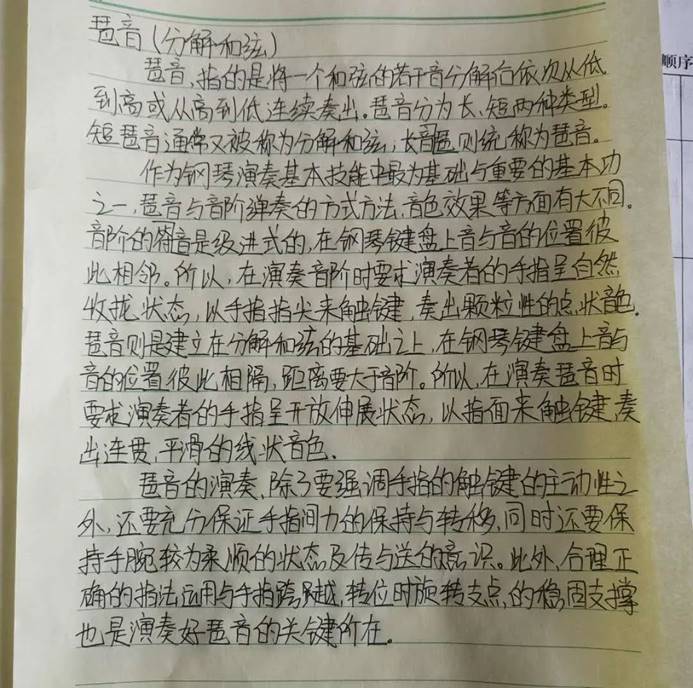 琶音(分解和弦)
琶音,指的是将一个和弦的若干音分解后依次从低
到高或从高到低连续奏出。琶音分为长、短两种类型。
短琶音通常又被称为分解和弦,长音琶则统称为琶音。
作为钢琴演奏基本技能中最为基础与重要的基本功
之一,琶音与音阶弹奏的方式方法,音色效果等方面有大不同。
音阶的符音是级进式的,在钢琴键盘上音与音的位置彼
此相邻。所以,在演奏音阶时要求演奏者的手指呈自然
收拢状态,以手指指尖来触键,奏出颗粒性的点状音色。
琶音则是建立在分解和弦的基础之上,在钢琴键盘上音与
音的位置彼此相隔,距离要大于音阶。所以,在演奏琶音时
要求演奏者的手指呈开放伸展状态,以指面来触键,奏
出连贯,平滑的线状音色.
琶音的演奏,除了要强调手指的触键的主动性之
外,还要充分保证手指间力的保持与转移,同时还要保
持手腕较为柔顺的状态及传与送的意识。此外,合理正
确的指法运用与手指跨越,转位时旋转支点,的稳固支撑
也是演奏好琶音的关键所在。
顺序